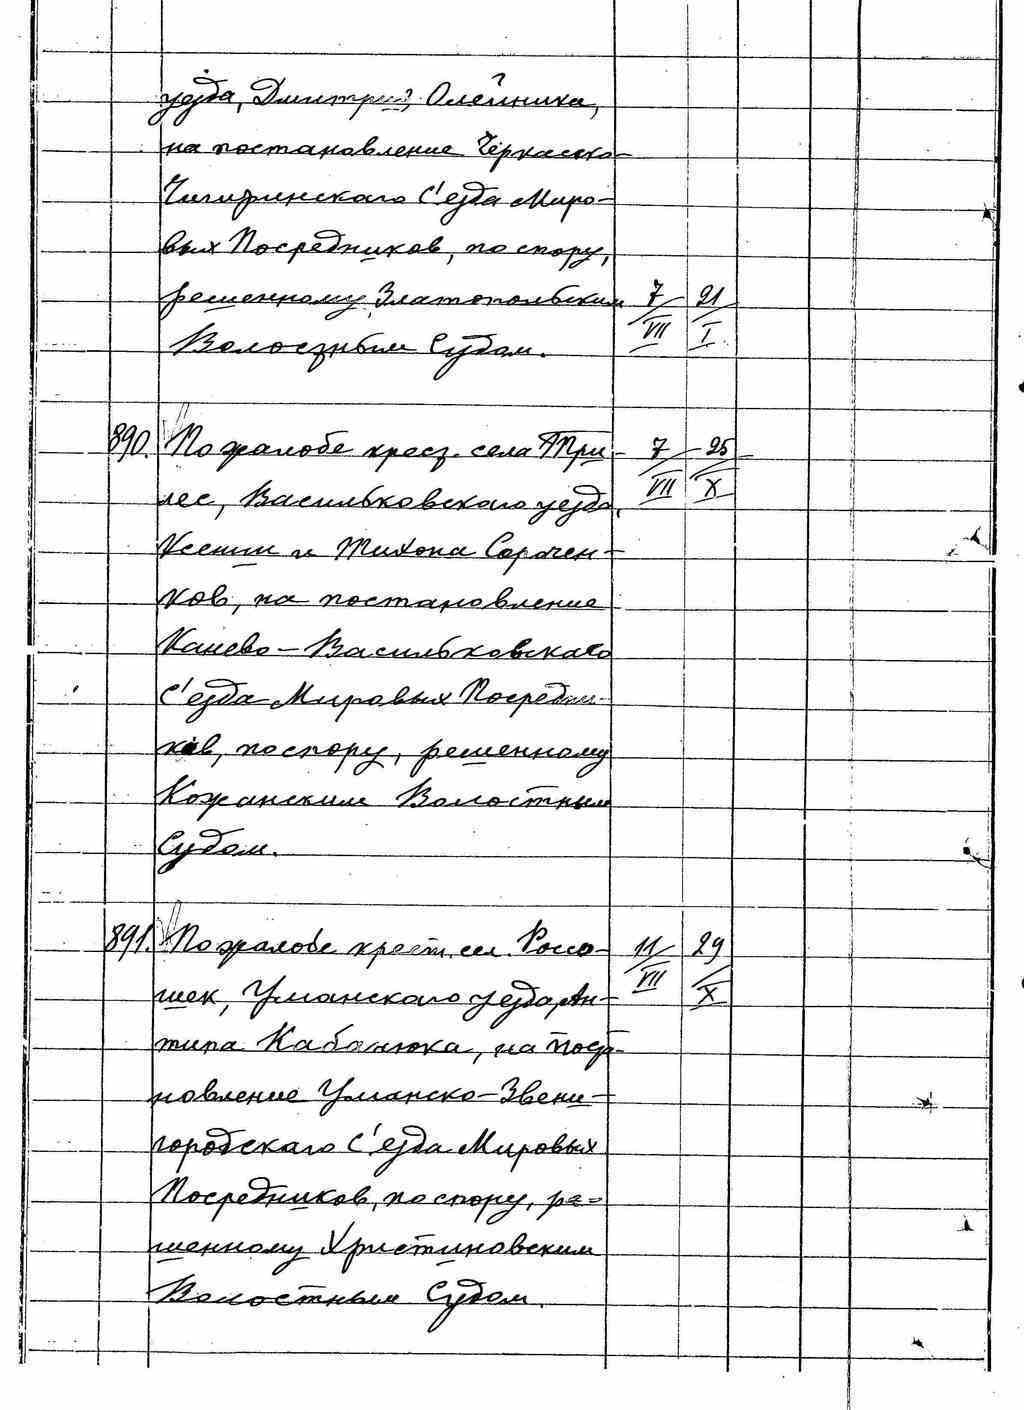 уезда, Дмитрия Олейника,
на постановление Черкасско-
Чигиринскаго С'езда Миро-
вых Посредников, по спору,
решенному Златопольским 7/VII 21/I
Волостным Судом.
890. По жалобе крест. села Три- 7/VII 25/X
лес, Васильковскаго уезда,
Ксении и Тихона Сорочен-
ков, на постановление
Канево-Васильковскаго
С'езда Мировых Посредни-
ков, по спору, решенному
Кожанским Волостным
Судом.
891. По жалобе крест. сел. Россо- 11/VII 29/X
шек, Уманскаго уезда, Ан-
типа Кабанюка, на поста-
новление Уманско-Звени-
городскаго С'езда Мировых
Посредников, по спору, ре-
шенному Христиновским
Волостным Судом.